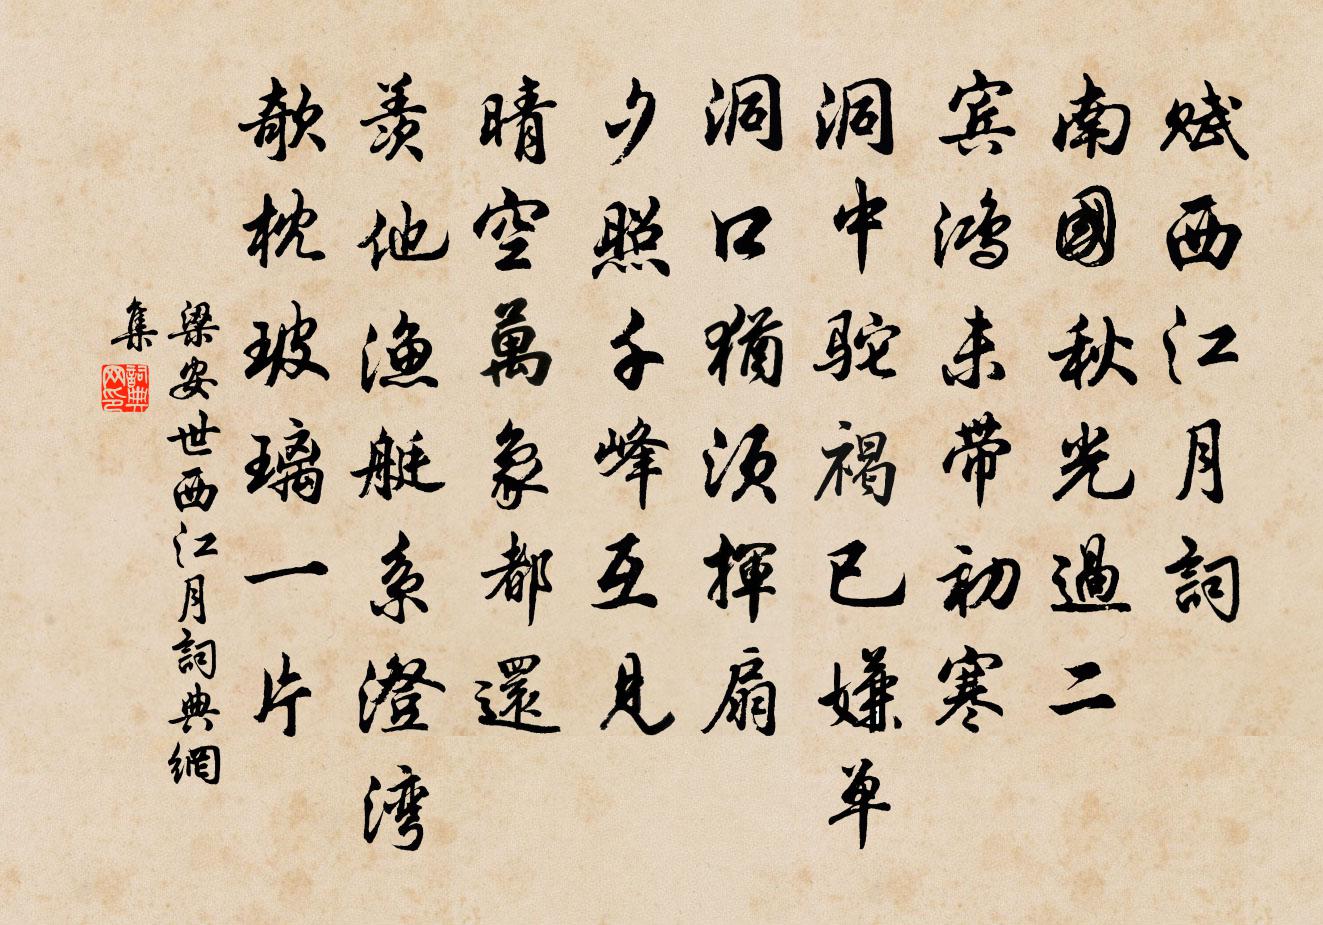 赋西江月詞
南國秋光過二
宾鴻未带初寒
洞中駝褐已嫌单
洞口猶須揮扇
夕照千峰互見
晴空萬象都還
羨他漁艇系澄湾
欹枕玻璃一片
梁安世西江月詞典網
集
詞典網印